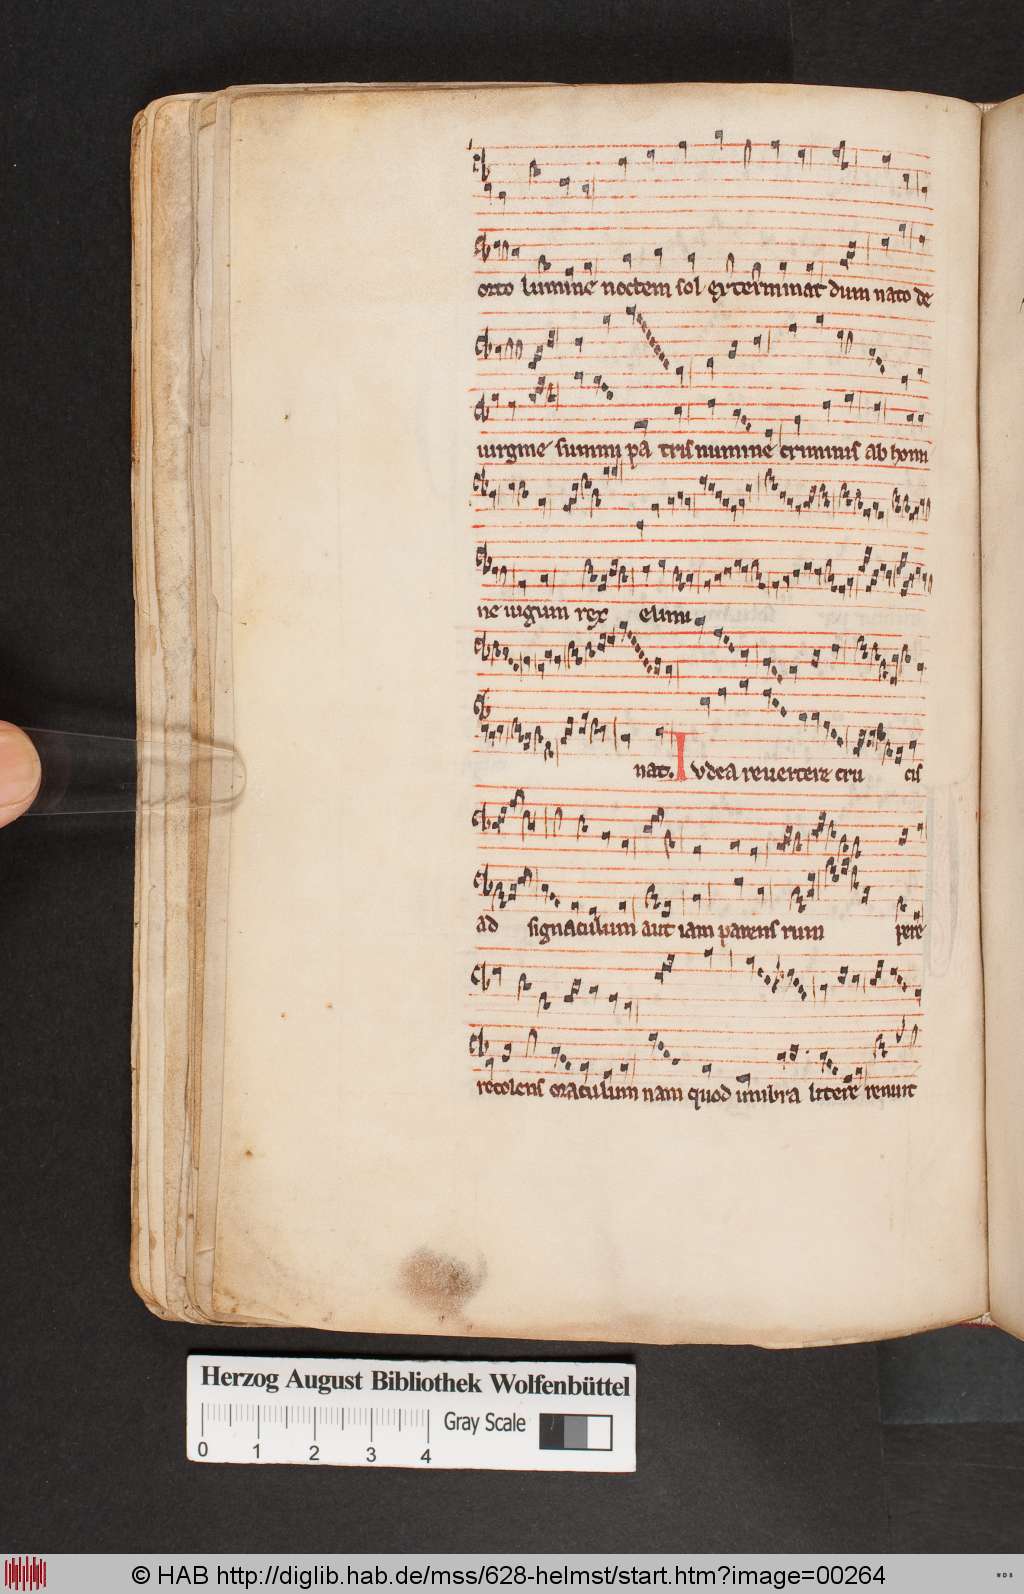 orto lumine noctem sol exterminat dum nato de
uirgine summi pa tris numine criminis ab homi
ne iugum rex elimi
nat. Iudea reuertere cru cis
ad signaculum aut iam parens rum pere
recolens oraculum nam quod umbra littere renuit
Herzog August Bibliothek Wolfenbüttel
Gray Scale
0 1 2 3 4
© HAB http://diglib.hab.de/mss/628-helmst/start.htm?image=00264